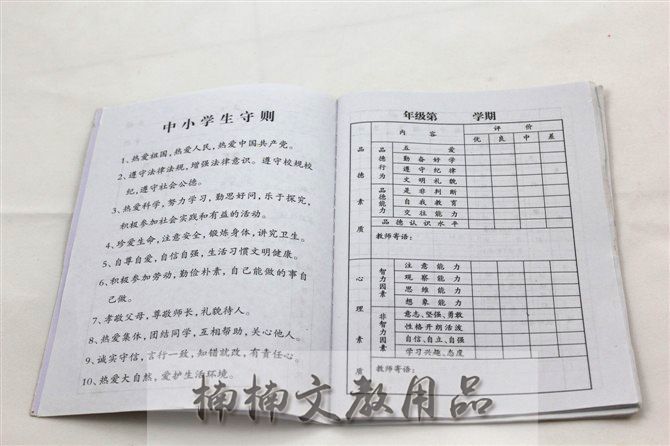 中小学生守则
1、热爱祖国,热爱人民,热爱中国共产党。
2、遵守法律法规,增强法律意识。遵守校规校
纪,遵守社会公德。
3、热爱科学,努力学习,勤思好问,乐于探究,
积极参加社会实践和有益的活动。
4、珍爱生命,注意安全,锻炼身体,讲究卫生。
5、自尊自爱,自信自强,生活习惯文明健康。
6、积极参加劳动,勤俭朴素,自己能做的事自
己做。
7、孝敬父母,尊敬师长,礼貌待人。
8、热爱集体,团结同学,互相帮助,关心他人。
9、诚实守信,言行一致,知错就改,有责任心。
10、热爱大自然,爱护生活环境。
年级第 学期
内容 评价
优 良 中 差
品德素质
品德行为
五爱
勤奋好学
遵守纪律
文明礼貌
品德能力
是非判断
自我教育
交往能力
品德认识水平
教师寄语:
心理素质
智力因素
注意能力
观察能力
思维能力
想象能力
非智力因素
意志、坚强、勇敢
性格开朗活泼
自信、自立、自强
学习兴趣、态度
教师寄语:
楠楠文教用品